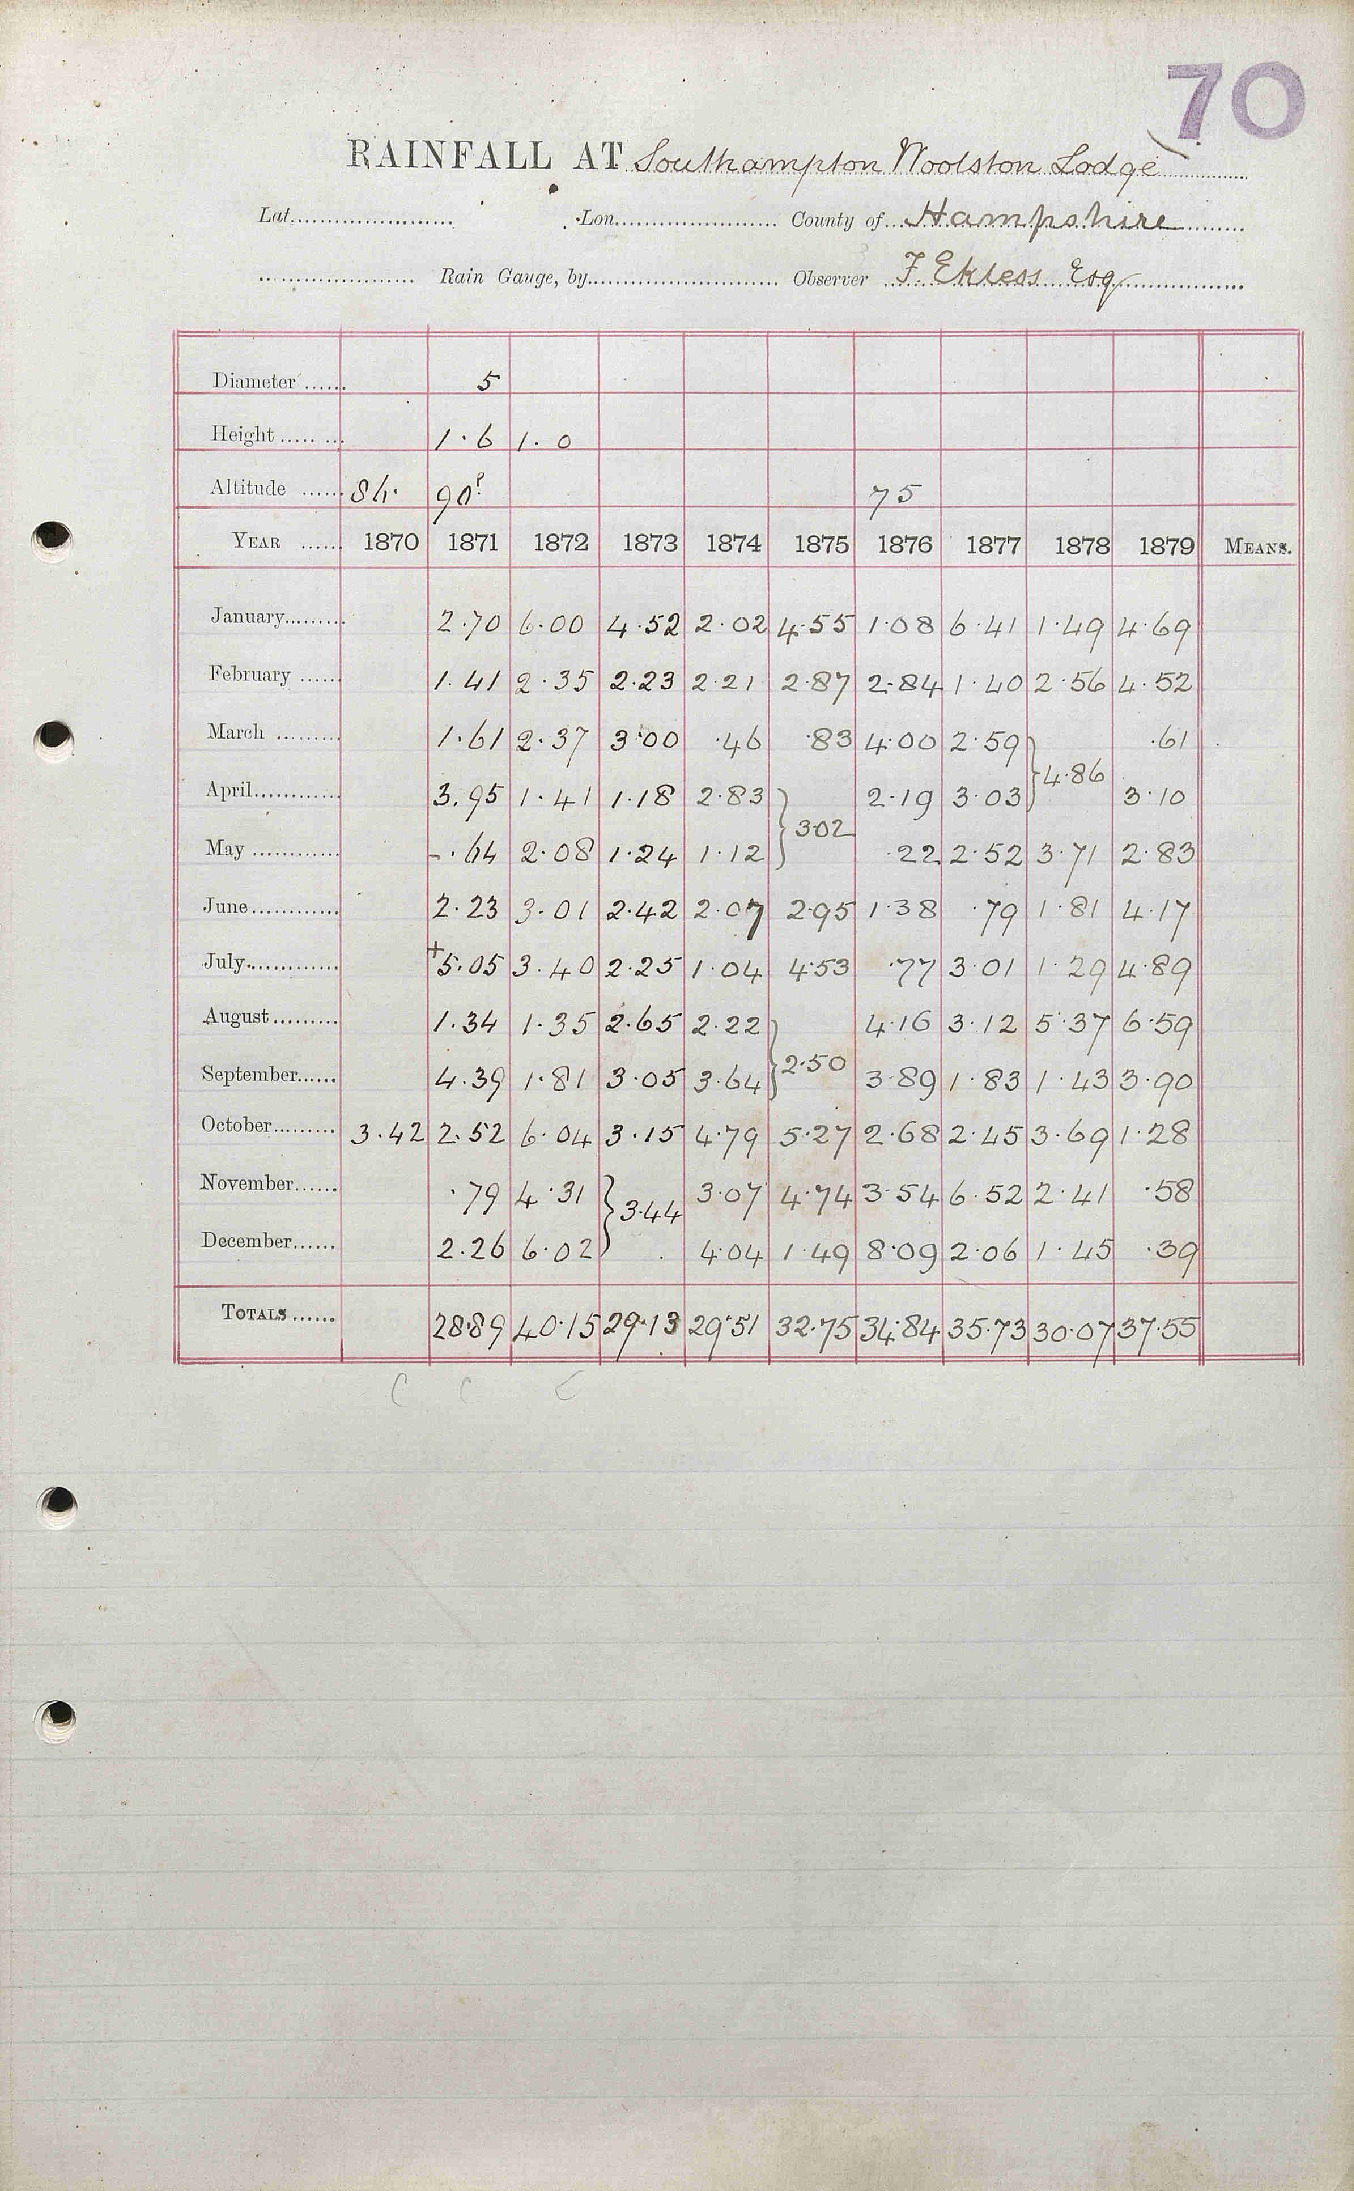 70
RAINFALL AT Southampton Woolston Lodge
Lat. Lon. County of Hampshire
Rain Gauge, by Observer F Ekless Esq
Diameter 5
Height 1.6 1.0
Altitude 84. 90? 75
YEAR 1870 1871 1872 1873 1874 1875 1876 1877 1878 1879 MEANS.
January 2.70 6.00 4.52 2.02 4.55 1.08 6.41 1.49 4.69
February 1.41 2.35 2.23 2.21 2.87 2.84 1.40 2.56 4.52
March 1.61 2.37 3.00 .46 .83 4.00 2.59 } 4.86 .61
April 3.95 1.41 1.18 2.83 } 3.02 2.19 3.03 3.10
May .64 2.08 1.24 1.12 .22 2.52 3.71 2.83
June 2.23 3.01 2.42 2.07 2.95 1.38 .79 1.81 4.17
July +5.05 3.40 2.25 1.04 4.53 .77 3.01 1.29 4.89
August 1.34 1.35 2.65 2.22 } 2.50 4.16 3.12 5.37 6.59
September 4.39 1.81 3.05 3.64 3.89 1.83 1.43 3.90
October 3.42 2.52 6.04 3.15 4.79 5.27 2.68 2.45 3.69 1.28
November .79 4.31 } 3.44 3.07 4.74 3.54 6.52 2.41 .58
December 2.26 6.02 4.04 1.49 8.09 2.06 1.45 .39
TOTALS 28.89 40.15 29.13 29.51 32.75 34.84 35.73 30.07 37.55
C C C